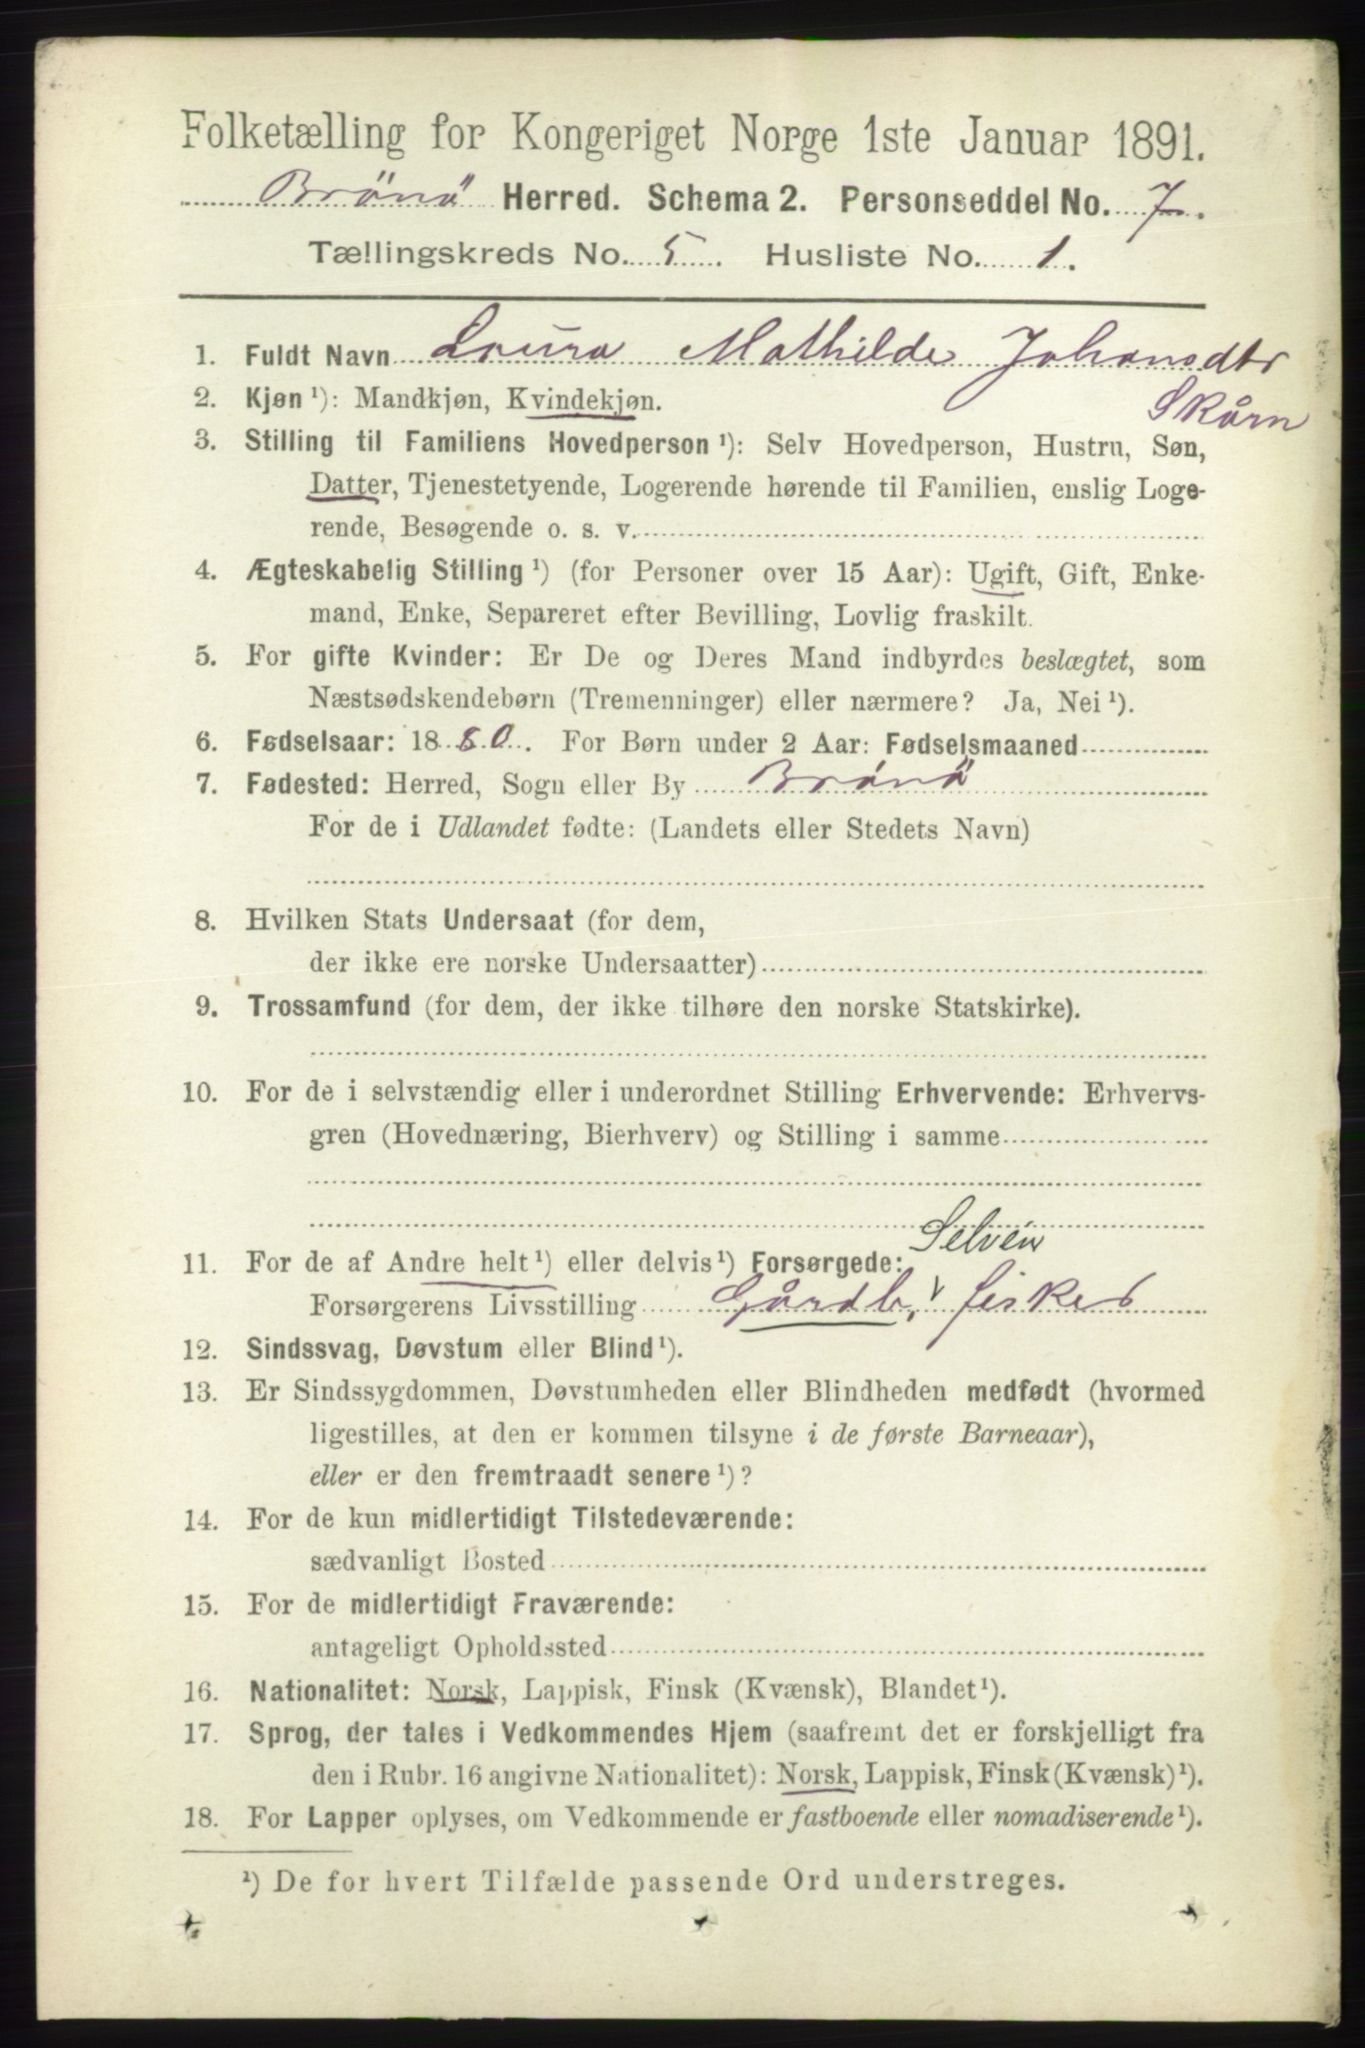 Folketælling for Kongeriget Norge 1ste Januar 1891.
Brönö Herred. Schema 2. Personseddel No. 7.
Tællingskreds No. 5. Husliste No. 1.
1. Fuldt Navn Laura Mathilde Johansdtr
Skårn
2. Kjøn ¹): Mandkjøn, Kvindekjøn.
3. Stilling til Familiens Hovedperson ¹): Selv Hovedperson, Hustru, Søn,
Datter, Tjenestetyende, Logerende hørende til Familien, enslig Loge-
rende, Besøgende o. s. v.
4. Ægteskabelig Stilling ¹) (for Personer over 15 Aar): Ugift, Gift, Enke-
mand, Enke, Separeret efter Bevilling, Lovlig fraskilt.
5. For gifte Kvinder: Er De og Deres Mand indbyrdes beslægtet, som
Næstsødskendebørn (Tremenninger) eller nærmere? Ja, Nei ¹).
6. Fødselsaar: 1880. For Børn under 2 Aar: Fødselsmaaned
7. Fødested: Herred, Sogn eller By Brönö
For de i Udlandet fødte: (Landets eller Stedets Navn)
8. Hvilken Stats Undersaat (for dem,
der ikke ere norske Undersaatter)
9. Trossamfund (for dem, der ikke tilhøre den norske Statskirke).
10. For de i selvstændig eller i underordnet Stilling Erhvervende: Erhvervs-
gren (Hovednæring, Bierhverv) og Stilling i samme
Selveier
11. For de af Andre helt ¹) eller delvis ¹) Forsørgede:
Forsørgerens Livsstilling Gårdb, fisker
12. Sindssvag, Døvstum eller Blind ¹).
13. Er Sindssygdommen, Døvstumheden eller Blindheden medfødt (hvormed
ligestilles, at den er kommen tilsyne i de første Barneaar),
eller er den fremtraadt senere ¹)?
14. For de kun midlertidigt Tilstedeværende:
sædvanligt Bosted
15. For de midlertidigt Fraværende:
antageligt Opholdssted
16. Nationalitet: Norsk, Lappisk, Finsk (Kvænsk), Blandet ¹).
17. Sprog, der tales i Vedkommendes Hjem (saafremt det er forskjelligt fra
den i Rubr. 16 angivne Nationalitet): Norsk, Lappisk, Finsk (Kvænsk) ¹).
18. For Lapper oplyses, om Vedkommende er fastboende eller nomadiserende ¹).
¹) De for hvert Tilfælde passende Ord understreges.